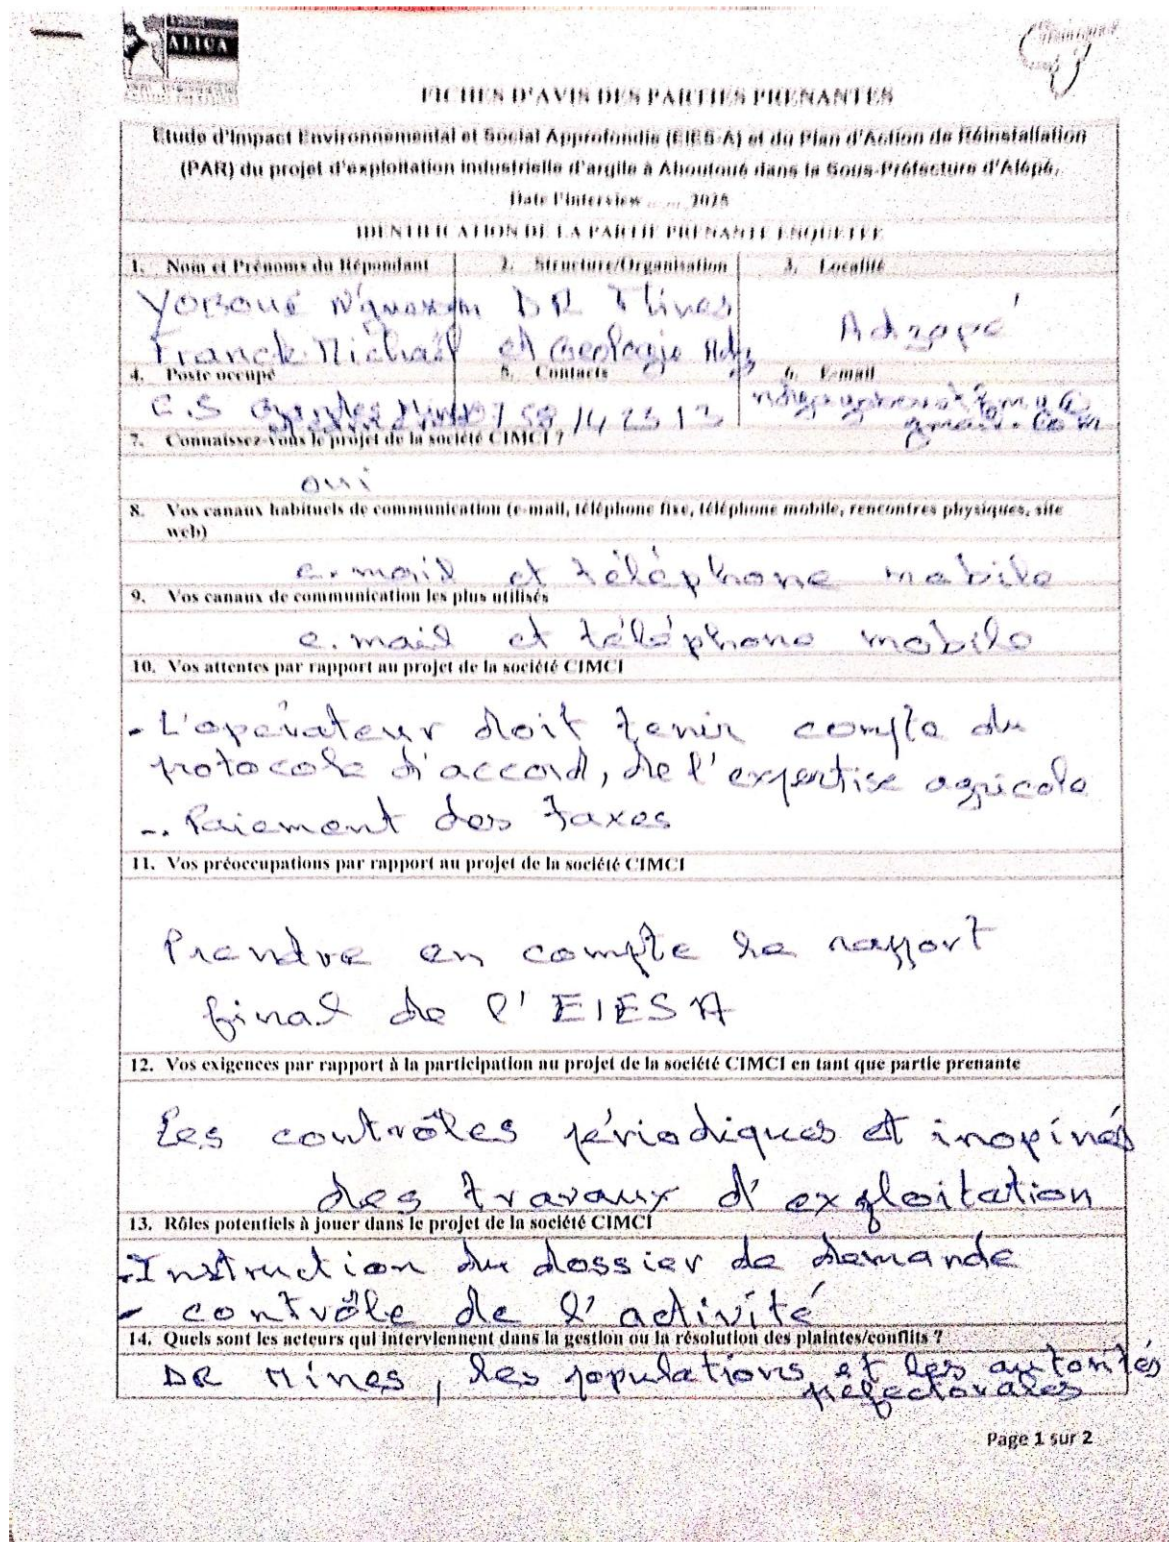 ALICA
FICHES D'AVIS DES PARTIES PRENANTES
Etude d'Impact Environnemental et Social Approfondie (EIES-A) et du Plan d'Action de Réinstallation
(PAR) du projet d'exploitation industrielle d'argile à Ahoutoué dans la Sous-Préfecture d'Alépé.
Date l'interview ........ 2025
IDENTIFICATION DE LA PARTIE PRENANTE ENQUETEE
1. Nom et Prénoms du Répondant 2. Structure/Organisation 3. Localité
Yoboué DR Mines
Adzopé
Franck Michaël et Geologie Adz
4. Poste occupé 5. Contacts 6. E-mail
C.S 58 14 25 13
gmail.com
7. Connaissez-vous le projet de la société CIMCI ?
oui
8. Vos canaux habituels de communication (e-mail, téléphone fixe, téléphone mobile, rencontres physiques, site
web)
e.mail et téléphone mobile
9. Vos canaux de communication les plus utilisés
e.mail et téléphone mobile
10. Vos attentes par rapport au projet de la société CIMCI
- L'opérateur doit tenir compte du
protocole d'accord, de l'expertise agricole
- Paiement des taxes
11. Vos préoccupations par rapport au projet de la société CIMCI
Prendre en compte le rapport
final de l'EIESA
12. Vos exigences par rapport à la participation au projet de la société CIMCI en tant que partie prenante
Les contrôles périodiques et inopinés
des travaux d'exploitation
13. Rôles potentiels à jouer dans le projet de la société CIMCI
- Instruction du dossier de demande
- contrôle de l'activité
14. Quels sont les acteurs qui interviennent dans la gestion ou la résolution des plaintes/conflits ?
DR Mines, les populations et les autorités
préfectorales
Page 1 sur 2